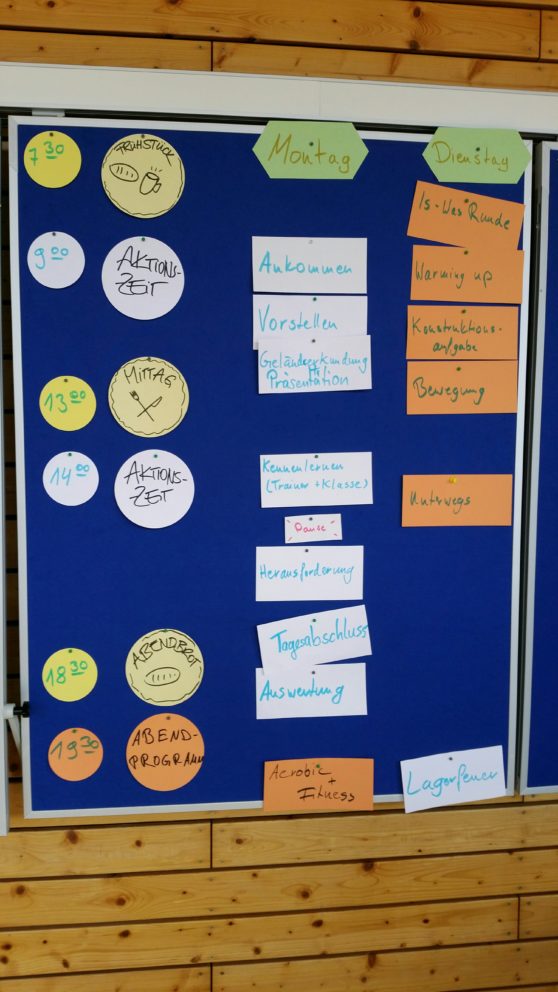 7 30
FRÜHSTÜCK
Montag
Dienstag
Is-Was Runde
9 00
AKTIONS-
ZEIT
Ankommen
Warming up
Vorstellen
Konstruktions-
aufgabe
Geländeerkundung
Präsentation
13 00
MITTAG
Bewegung
14 00
AKTIONS-
ZEIT
Kennenlernen
(Trainer + Klasse)
Unterwegs
Pause
Herausforderung
Tagesabschluss
18 30
ABENDBROT
Auswertung
19 30
ABEND-
PROGRAMM
Aerobic
+
Fitness
Lagerfeuer